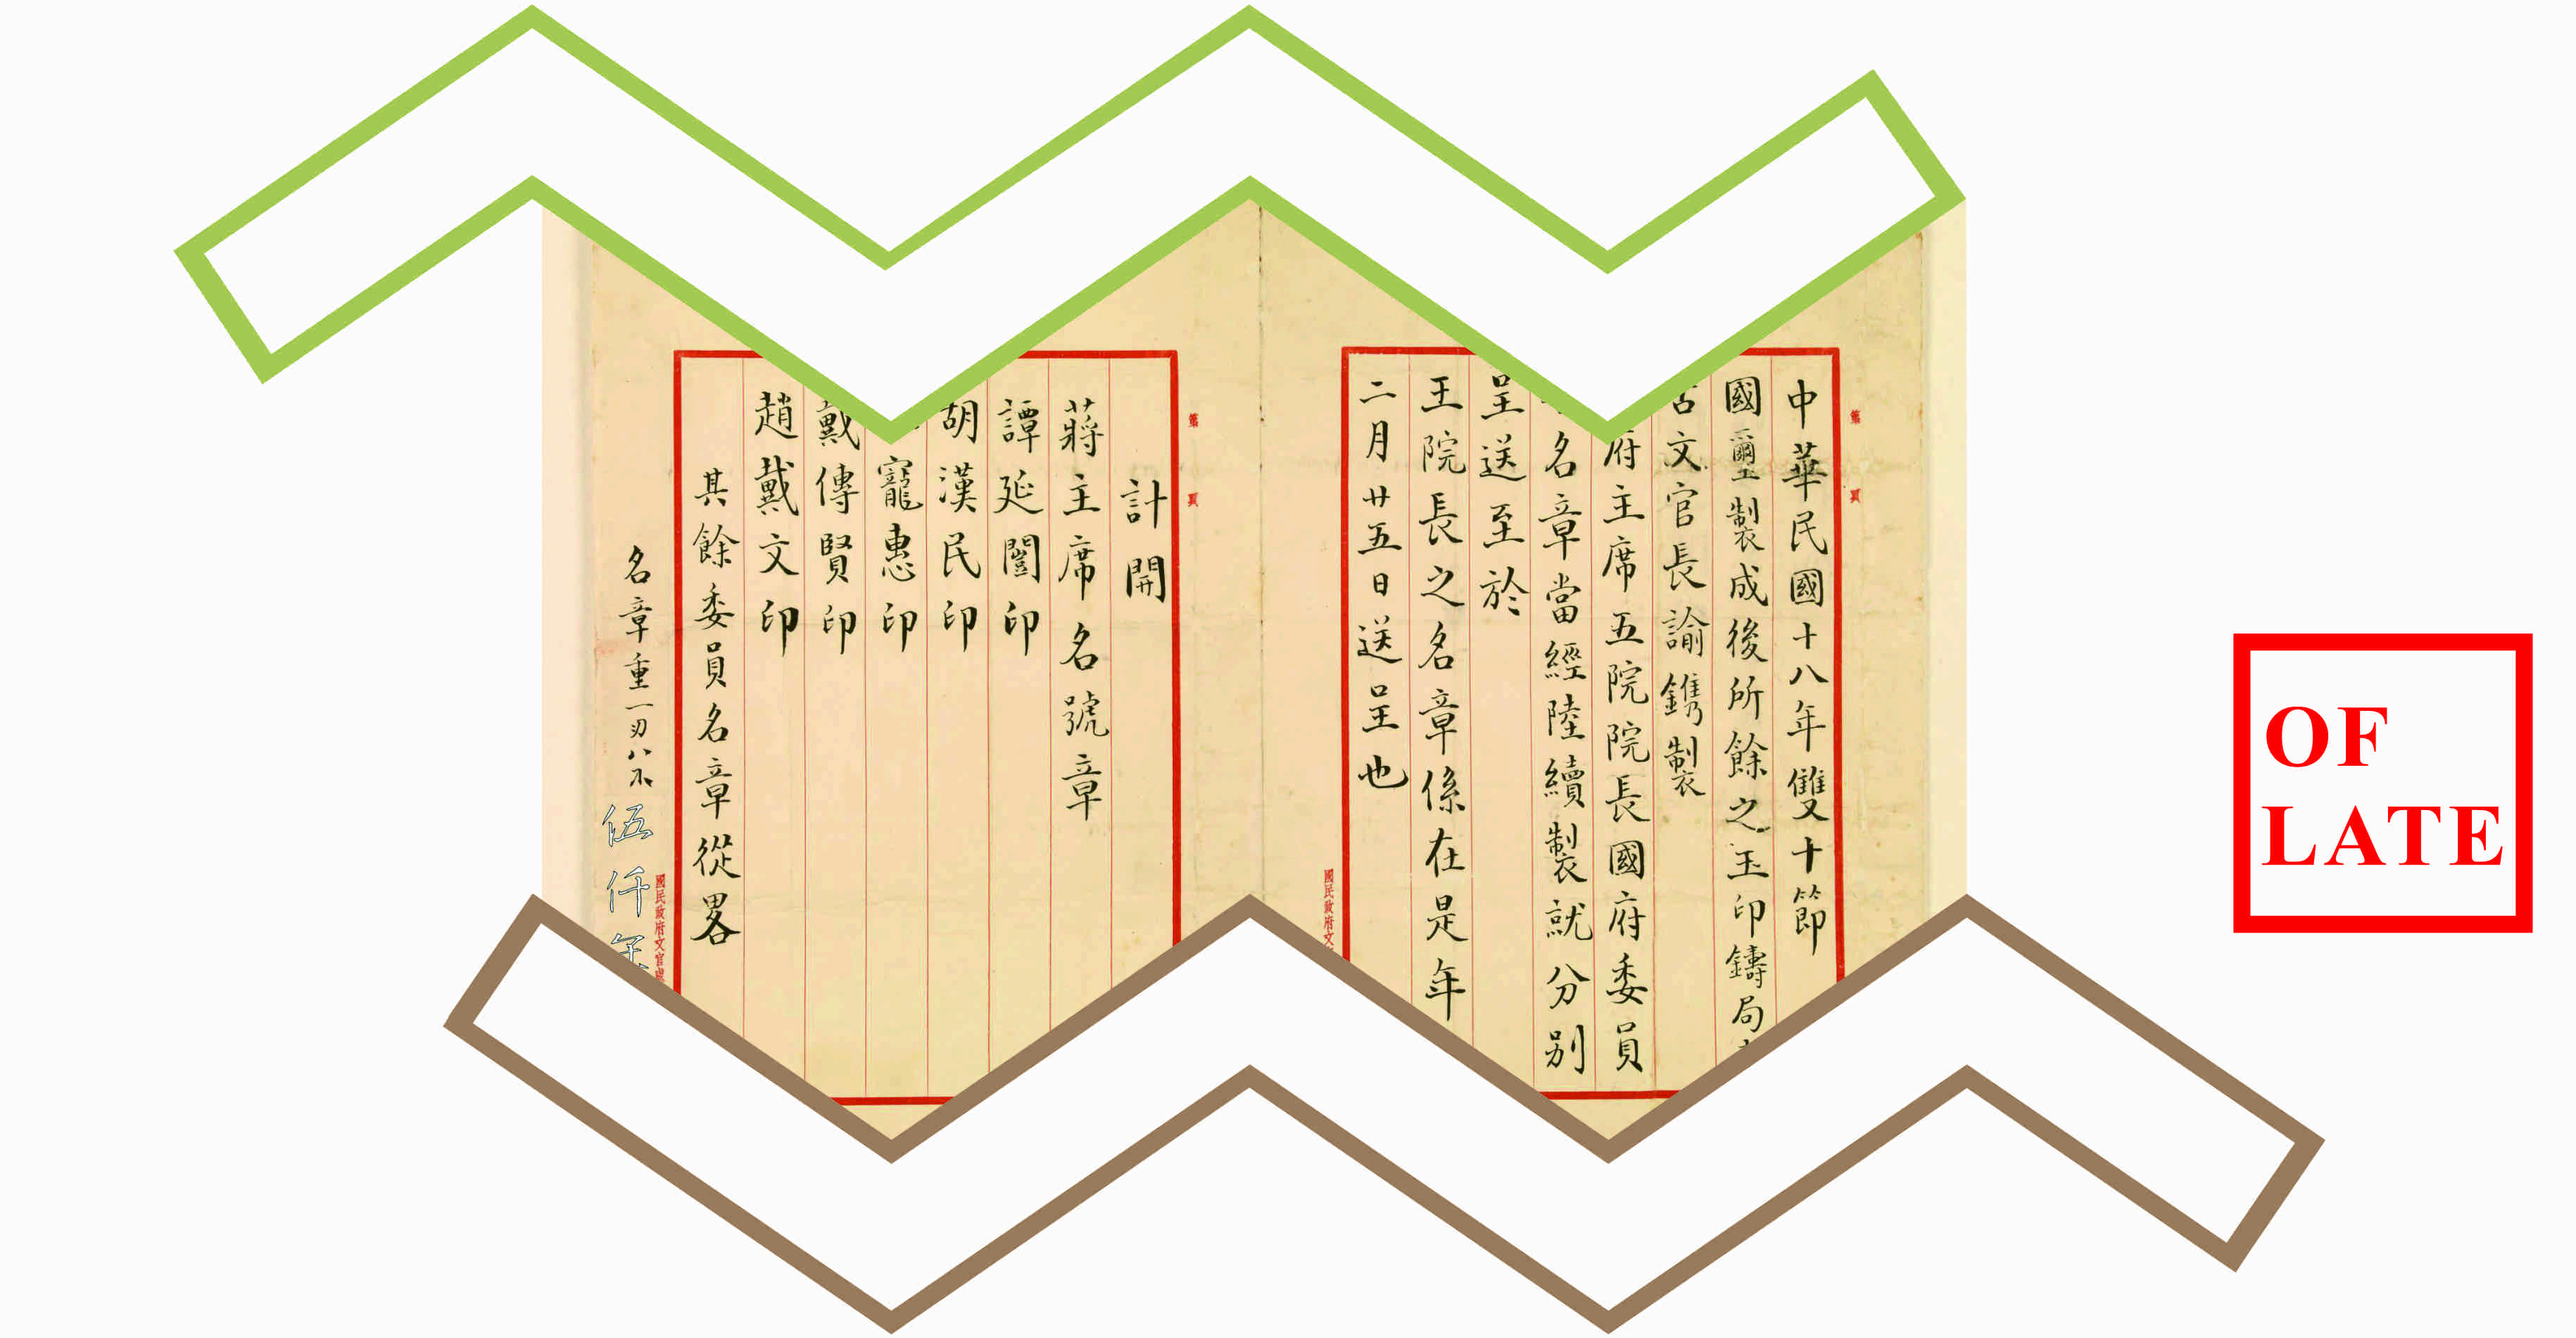 中華民國十八年雙十節
國璽製成後所餘之玉印鑄局
文官長諭鐫製
府主席五院院長國府委員
名章當經陸續製就分別
呈送至於
王院長之名章係在是年
二月廿五日送呈也
計開
蔣主席名號章
譚延闓印
胡漢民印
寵惠印
戴傳賢印
趙戴文印
其餘委員名章從畧
名章重一
伍仟年
第 頁
第 頁
國民政府文
國民政府文官處
OF
LATE